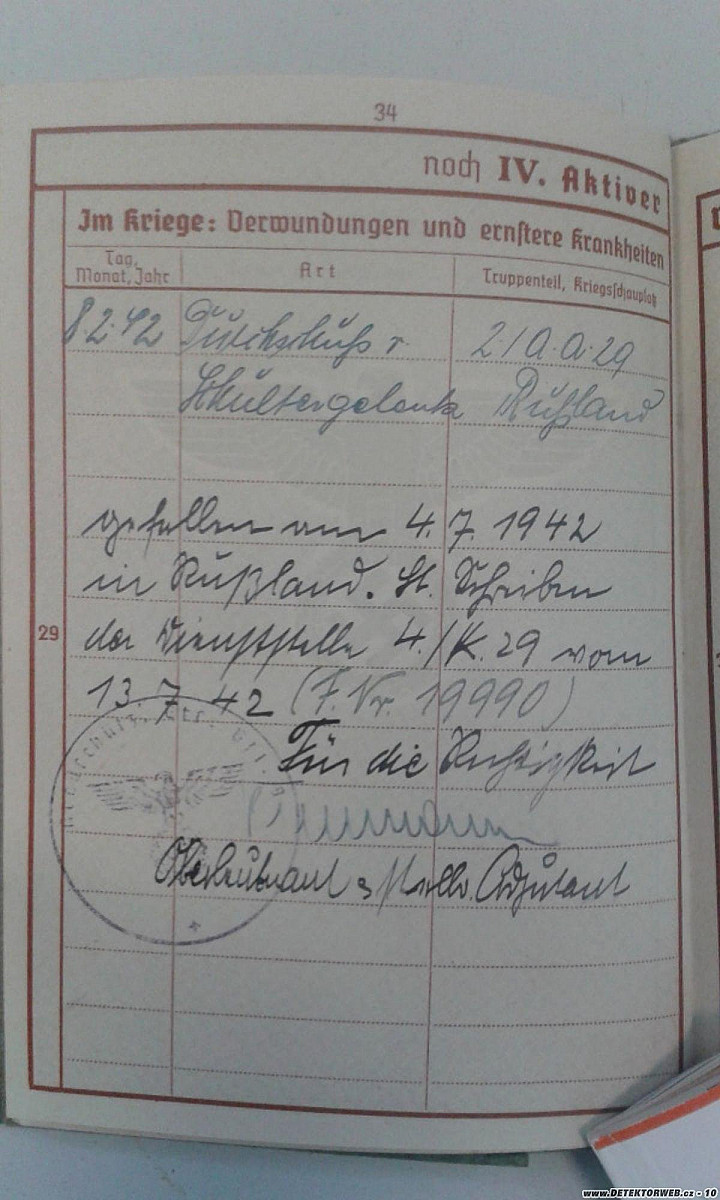 34
noch IV. Aktiver
Im Kriege: Verwundungen und ernstere Krankheiten
Tag, Monat, Jahr
Art
Truppenteil, Kriegsschauplatz
8.2.42 Durchschuß r. 2/A.A.29
Schultergelenk Rußland
gefallen am 4.7.1942
in Rußland. Lt. Schreiben
29
der Dienststelle 4./K.29 vom
13.7.42 (F. Nr. 19990)
Für die Richtigkeit
Oberleutnant u. stellv. Adjutant
www.DETEKTORWEB.cz - 10